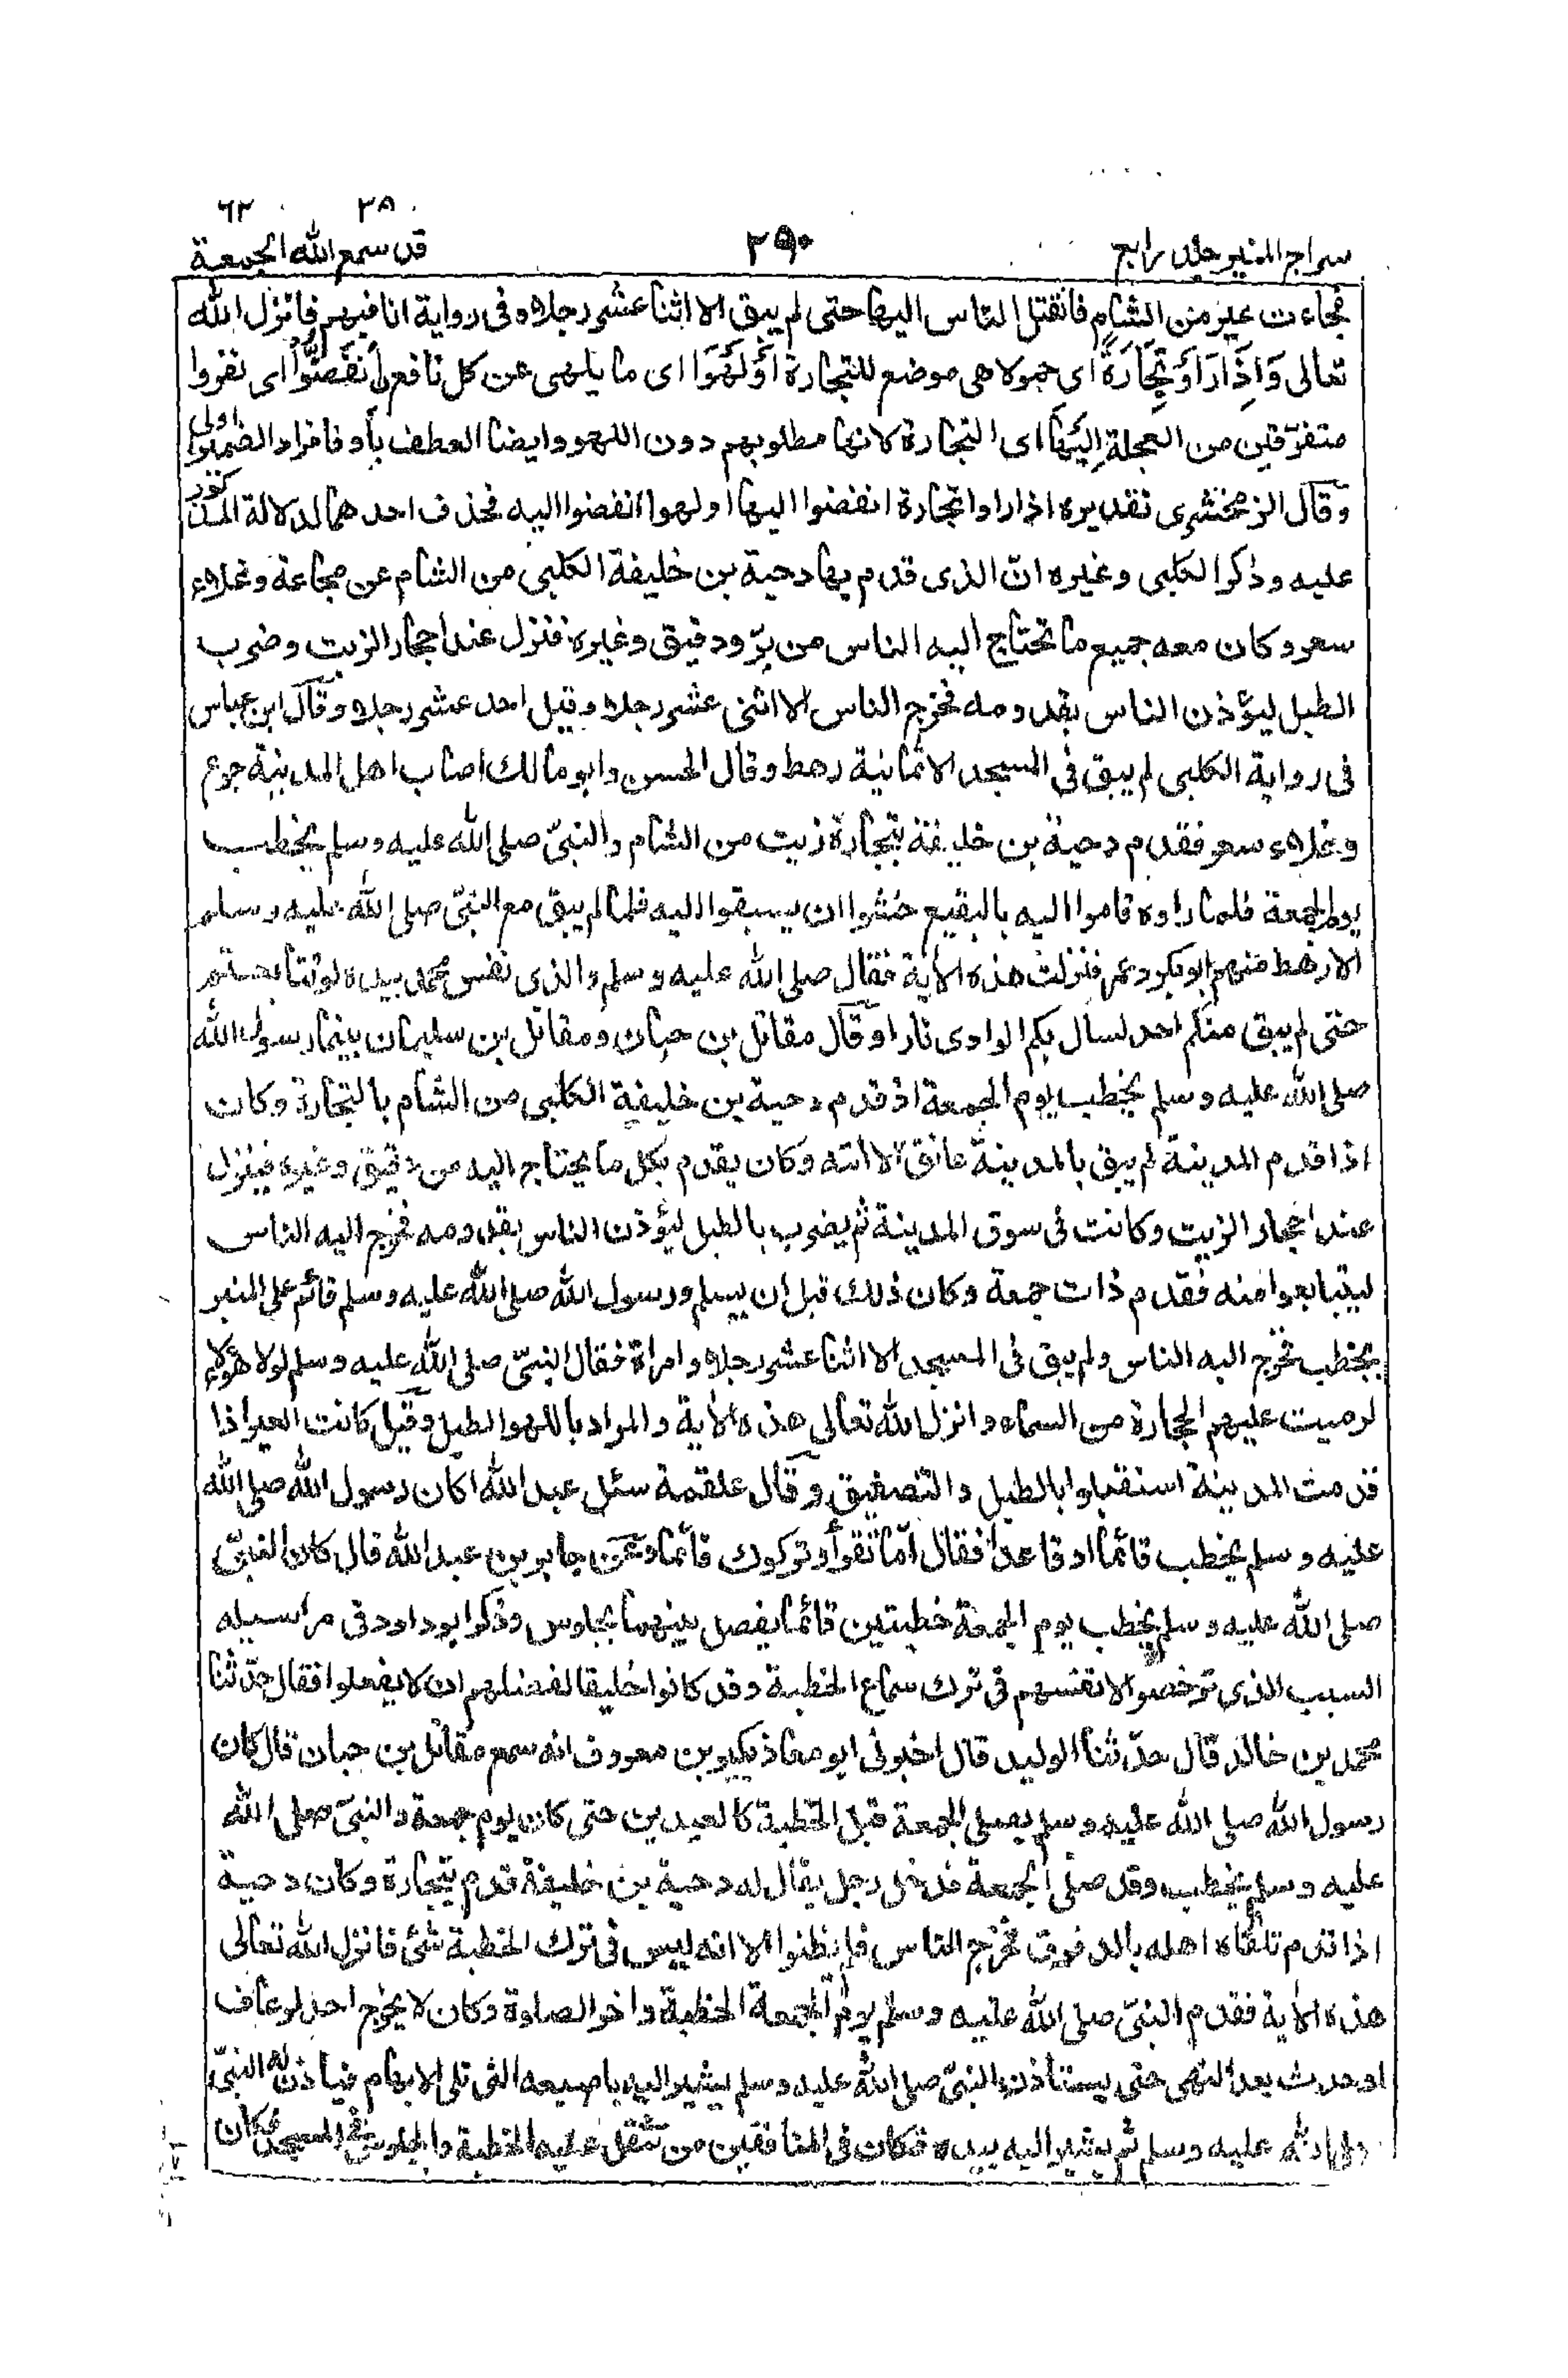 ٢٨ ٦٢
سراج المنير جلد رابع ٢٩٠ قد سمع الله الجمعة
فجاءت عير من الشام فانفتل الناس اليها حتى لم يبق الا اثنا عشر رجلا وفى رواية انا فيهم فانزل الله
تعالى وَاِذَا رَاَوْ تِجَارَةً اى حمولا هى موضع للتجارة اَوْ لَهْوَا اى ما يلهى عن كل نافع اِنْفَضُّوْا اى نفروا
متفرّقين من العجلة اِلَيْهَا اى التجارة لانها مطلوبهم دون اللهو وايضا العطف بأو فافراد الضمير اولى
وقال الزمخشرى تقديره اذا راوا تجارة انفضوا اليها او لهوا انفضوا اليه فحذف احدهما لدلالة المذكور
عليه وذكر الكلبى وغيره انّ الذى قدم بها دحية بن خليفة الكلبى من الشام عن مجاعة وغلاء
سعر وكان معه جميع ما تحتاج اليه الناس من برّ ودقيق وغيره فنزل عند احجار الزيت وضرب
الطبل ليؤذن الناس بقدومه فخرج الناس الا اثنى عشر رجلا وقيل احد عشر رجلا وقال ابن عباس
فى رواية الكلبى لم يبق فى المسجد الا ثمانية رهط وقال الحسن وابو مالك اصاب اهل المدينة جوع
وغلاء سعر فقدم دحية بن خليفة بتجارة زيت من الشام والنبىّ صلى الله عليه وسلم يخطب
يوم الجمعة فلما راوه قاموا اليه بالبقيع خشوا ان يسبقوا اليه فلما لم يبق مع النبىّ صلى الله عليه وسلم
الا رهط منهم ابو بكر وعمر فنزلت هذه الاية فقال صلى الله عليه وسلم والذى نفس محمد بيده لو تتابعتم
حتى لم يبق منكم احد لسال بكم الوادى نارا وقال مقاتل بن حبان ومقاتل بن سليمان بينما رسول الله
صلى الله عليه وسلم يخطب يوم الجمعة اذ قدم دحية بن خليفة الكلبى من الشام بالتجارة وكان
اذا قدم المدينة لم يبق بالمدينة عاتق الا اتته وكان يقدم بكل ما يحتاج اليه من دقيق وغيره فينزل
عند احجار الزيت وكانت فى سوق المدينة ثم يضرب بالطبل ليؤذن الناس بقدومه فخرج اليه الناس
ليتبايعوا منه فقدم ذات جمعة وكان ذلك قبل ان يسلم ورسول الله صلى الله عليه وسلم قائم على المنبر
يخطب فخرج اليه الناس ولم يبق فى المسجد الا اثنا عشر رجلا وامراة فقال النبىّ صلى الله عليه وسلم لولا هؤلاء
لرميت عليهم الحجارة من السماء وانزل الله تعالى هذه الاية والمراد باللهو الطبل وقيل كانت العير اذا
قدمت المدينة استقبلوا بالطبل والتصفيق وقال علقمة سئل عبد الله اكان رسول الله صلى الله
عليه وسلم يخطب قائما او قاعدا فقال امّا تقرأ وتركوك قائما وعن جابر بن عبد الله قال كان النبىّ
صلى الله عليه وسلم يخطب يوم الجمعة خطبتين قائما يفصل بينهما بجلوس وذكر ابو داود فى مراسيله
السبب الذى ترخصوا لانفسهم فى ترك سماع الخطبة وقد كانوا خليقا لفضلهم ان لا يفعلوا فقال حدّثنا
محمد بن خالد قال حدّثنا الوليد قال اخبرنى ابو معاذ بكير بن معروف انه سمع مقاتل بن حبان قال كان
رسول الله صلى الله عليه وسلم يصلى الجمعة قبل الخطبة كالعيدين حتى كان يوم جمعة والنبىّ صلى الله
عليه وسلم يخطب وقد صلى الجمعة فدخل رجل يقال له دحية بن خليفة قدم بتجارة وكان دحية
اذا قدم تلقاه اهله بالدفوف فخرج الناس فلم يظنوا الا انه ليس فى ترك الخطبة شئ فانزل الله تعالى
هذه الاية فقدم النبىّ صلى الله عليه وسلم يوم الجمعة الخطبة واخر الصلوة وكان لا يخرج احد لرعاف
او حدث بعد النهى حتى يستأذن النبىّ صلى الله عليه وسلم يشير اليه باصبعه التى تلى الابهام فيأذن له النبىّ
صلى الله عليه وسلم ثم يشير اليه بيده فكان فى المنافقين من تثقل عليه الخطبة والجلوس فى المسجد فكان